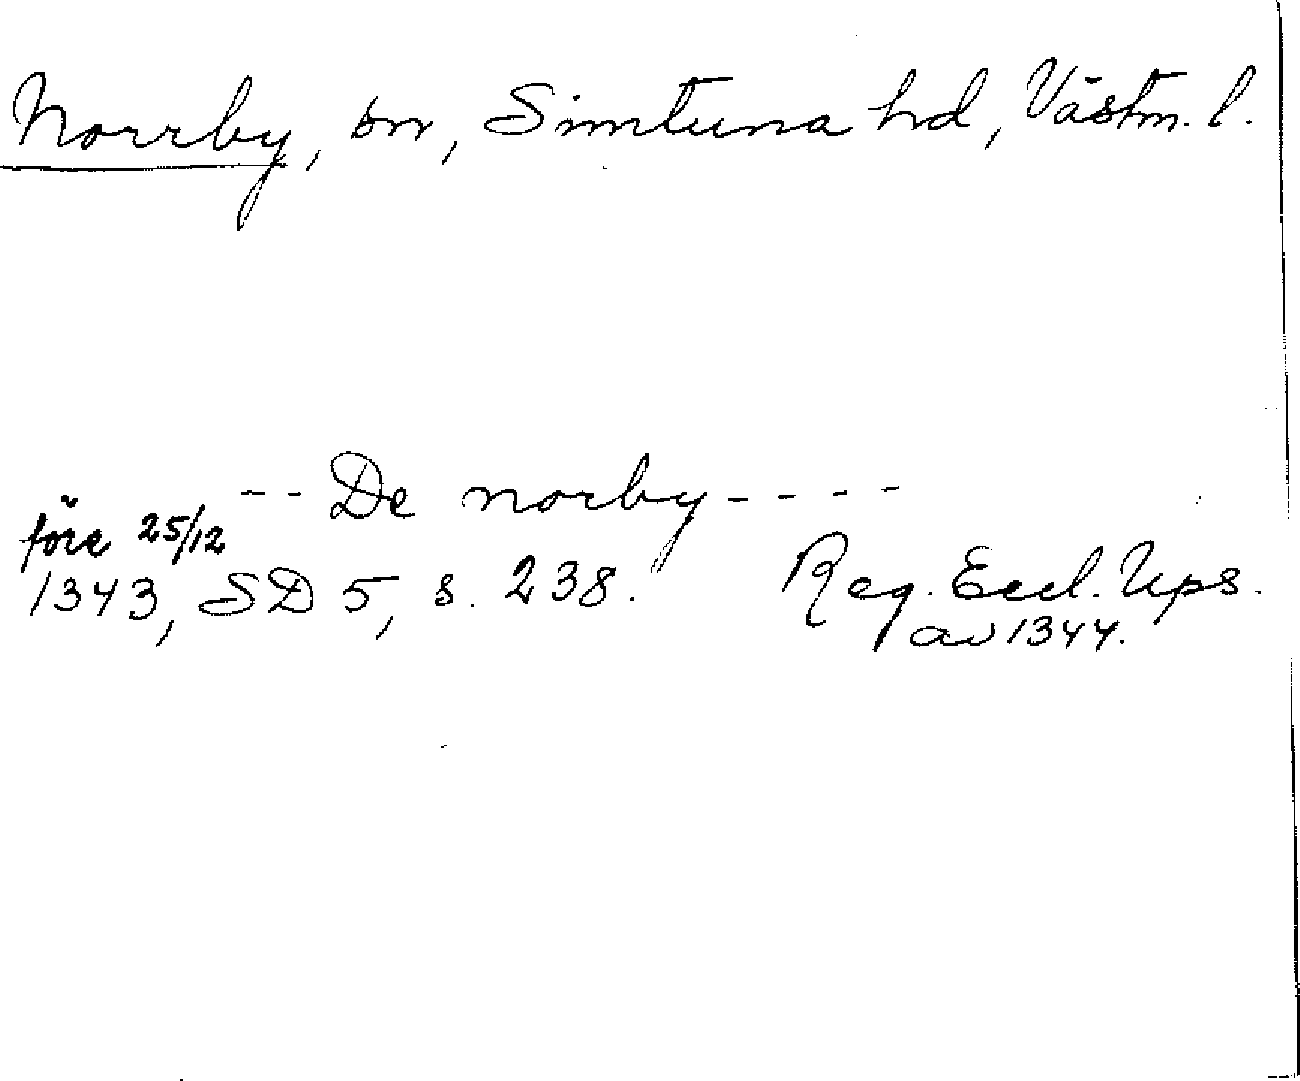 Norrby, sn, Simtuna hd, Västm. l.
-- De norby - - - -
före 25/12
1343, SD 5, s. 238. Reg. Eccl. Ups.
av 1344.